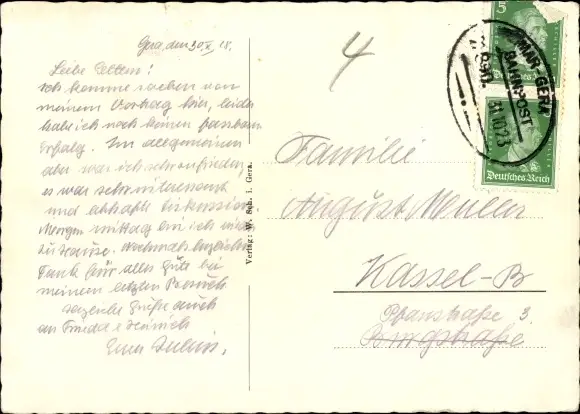 Gera, den 30.X. 28.
Liebe Eltern!
Ich komme soeben von
meinem Vortrag hier, leider
habe ich noch keinen fassbaren
Erfolg. Im allgemeinen
aber war ich sehr zufrieden
es war sehr interessant
und lebhafte Diskussion.
Morgen mittag bin ich wieder
zu Hause. Nochmals herzlichen
Dank für alles Gute bei
meinem letzten Besuch
herzliche Grüße auch
an Friedel & Heinrich
Euer
4
Verlag: W. Sch. i. Gera.
Familie
August Müller
Kassel-B
Pfarrstraße 3.
Burgstraße
5
Deutsches Reich
WEIMAR-GERA
BAHNPOST
31.10.23